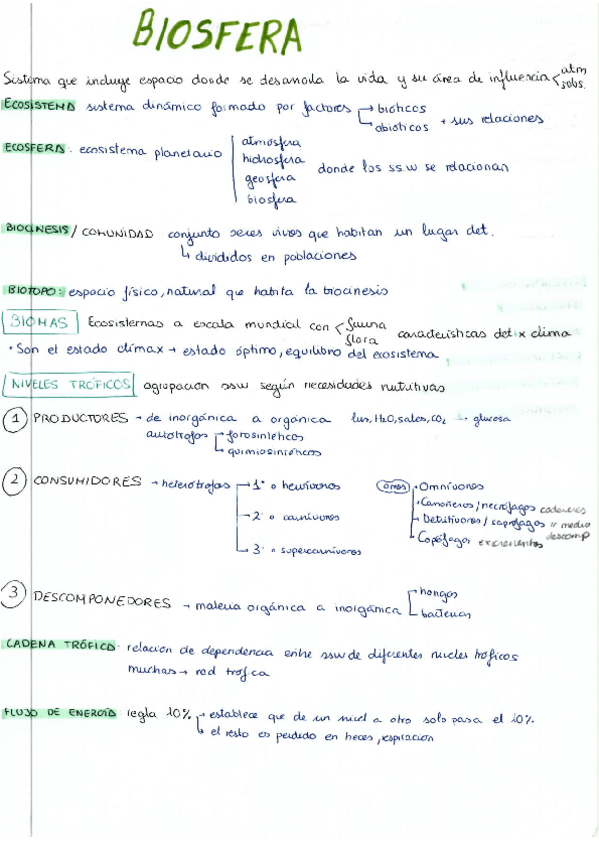 BIOSFERA
Sistema que incluye espacio donde se desarrolla la vida y su área de influencia < atm
sobs.
ECOSISTEMA sistema dinámico formado por factores → bióticos
↳ abióticos + sus relaciones
ECOSFERA: ecosistema planetario | atmosfera
hidrosfera
geosfera
biosfera
donde los ss.vv se relacionan
BIOCINESIS / COMUNIDAD conjunto seres vivos que habitan un lugar det.
↳ divididos en poblaciones
BIOTOPO: espacio físico, natural que habita la biocinesis
BIOMAS Ecosistemas a escala mundial con < fauna
flora
características det x clima
• Son el estado clímax → estado óptimo, equilibrio del ecosistema
NIVELES TRÓFICOS agrupación ssvv según necesidades nutritivas
1 PRODUCTORES → de inorgánica a orgánica luz, H2O, sales, CO2 → glucosa
autótrofos fotosintéticos
quimiosintéticos
2 CONSUMIDORES → heterótrofos 1º o hervívoros
2º o carnívoros
3º o supercarnívoros
otros • Omnívoros
• Carroñeros / necrófagos cadáveres
- Detritívoros / saprófagos " medio
descomp
- Copófagos excrementos
3 DESCOMPONEDORES → materia orgánica a inorgánica hongos
bacterias
CADENA TRÓFICA: relación de dependencia entre ssvv de diferentes niveles tróficos
muchas → red trófica
FLUJO DE ENERGÍA: regla 10% → establece que de un nivel a otro solo pasa el 10%
↳ el resto es perdido en heces, respiración